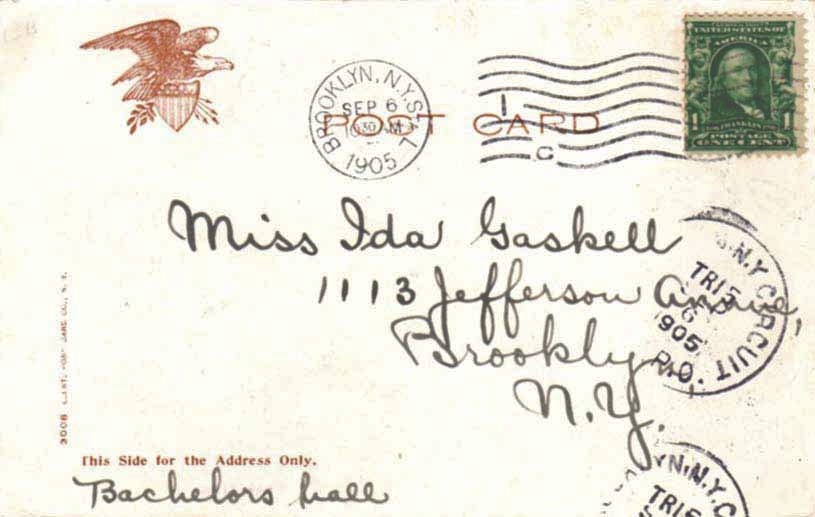 BROOKLYN, N.Y. STA. L
SEP 6
10 30 AM
1905
POST CARD
1
C
UNITED STATES OF
1 1
POSTAGE
ONE CENT
Miss Ida Gaskell
1113 Jefferson Avenue,
Brooklyn,
N.Y.
N.Y. CIRCUIT
TRIP
6
1905
R.P.O.
3008
POST CARD CO., N. Y.
This Side for the Address Only.
Bachelors hall
N.Y. C
TRIP